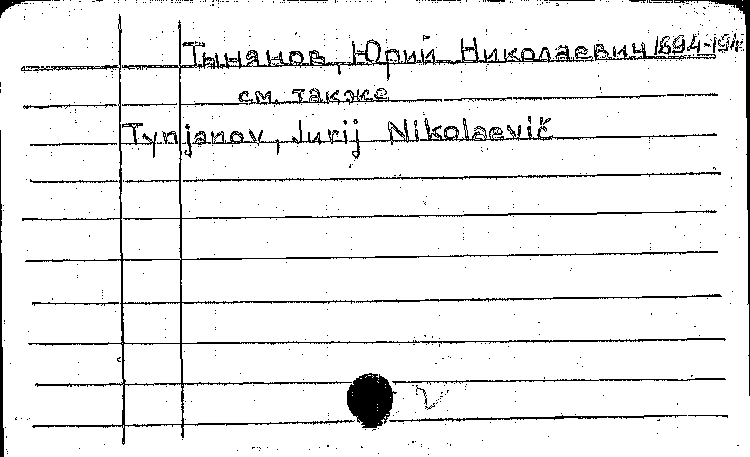 Тынянов, Юрий Николаевич 1894-194
см. также
Tynjanov, Jurij Nikolaevič